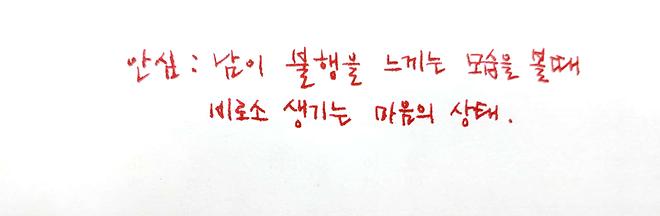 안심 : 남이 불행을 느끼는 모습을 볼때
비로소 생기는 마음의 상태.